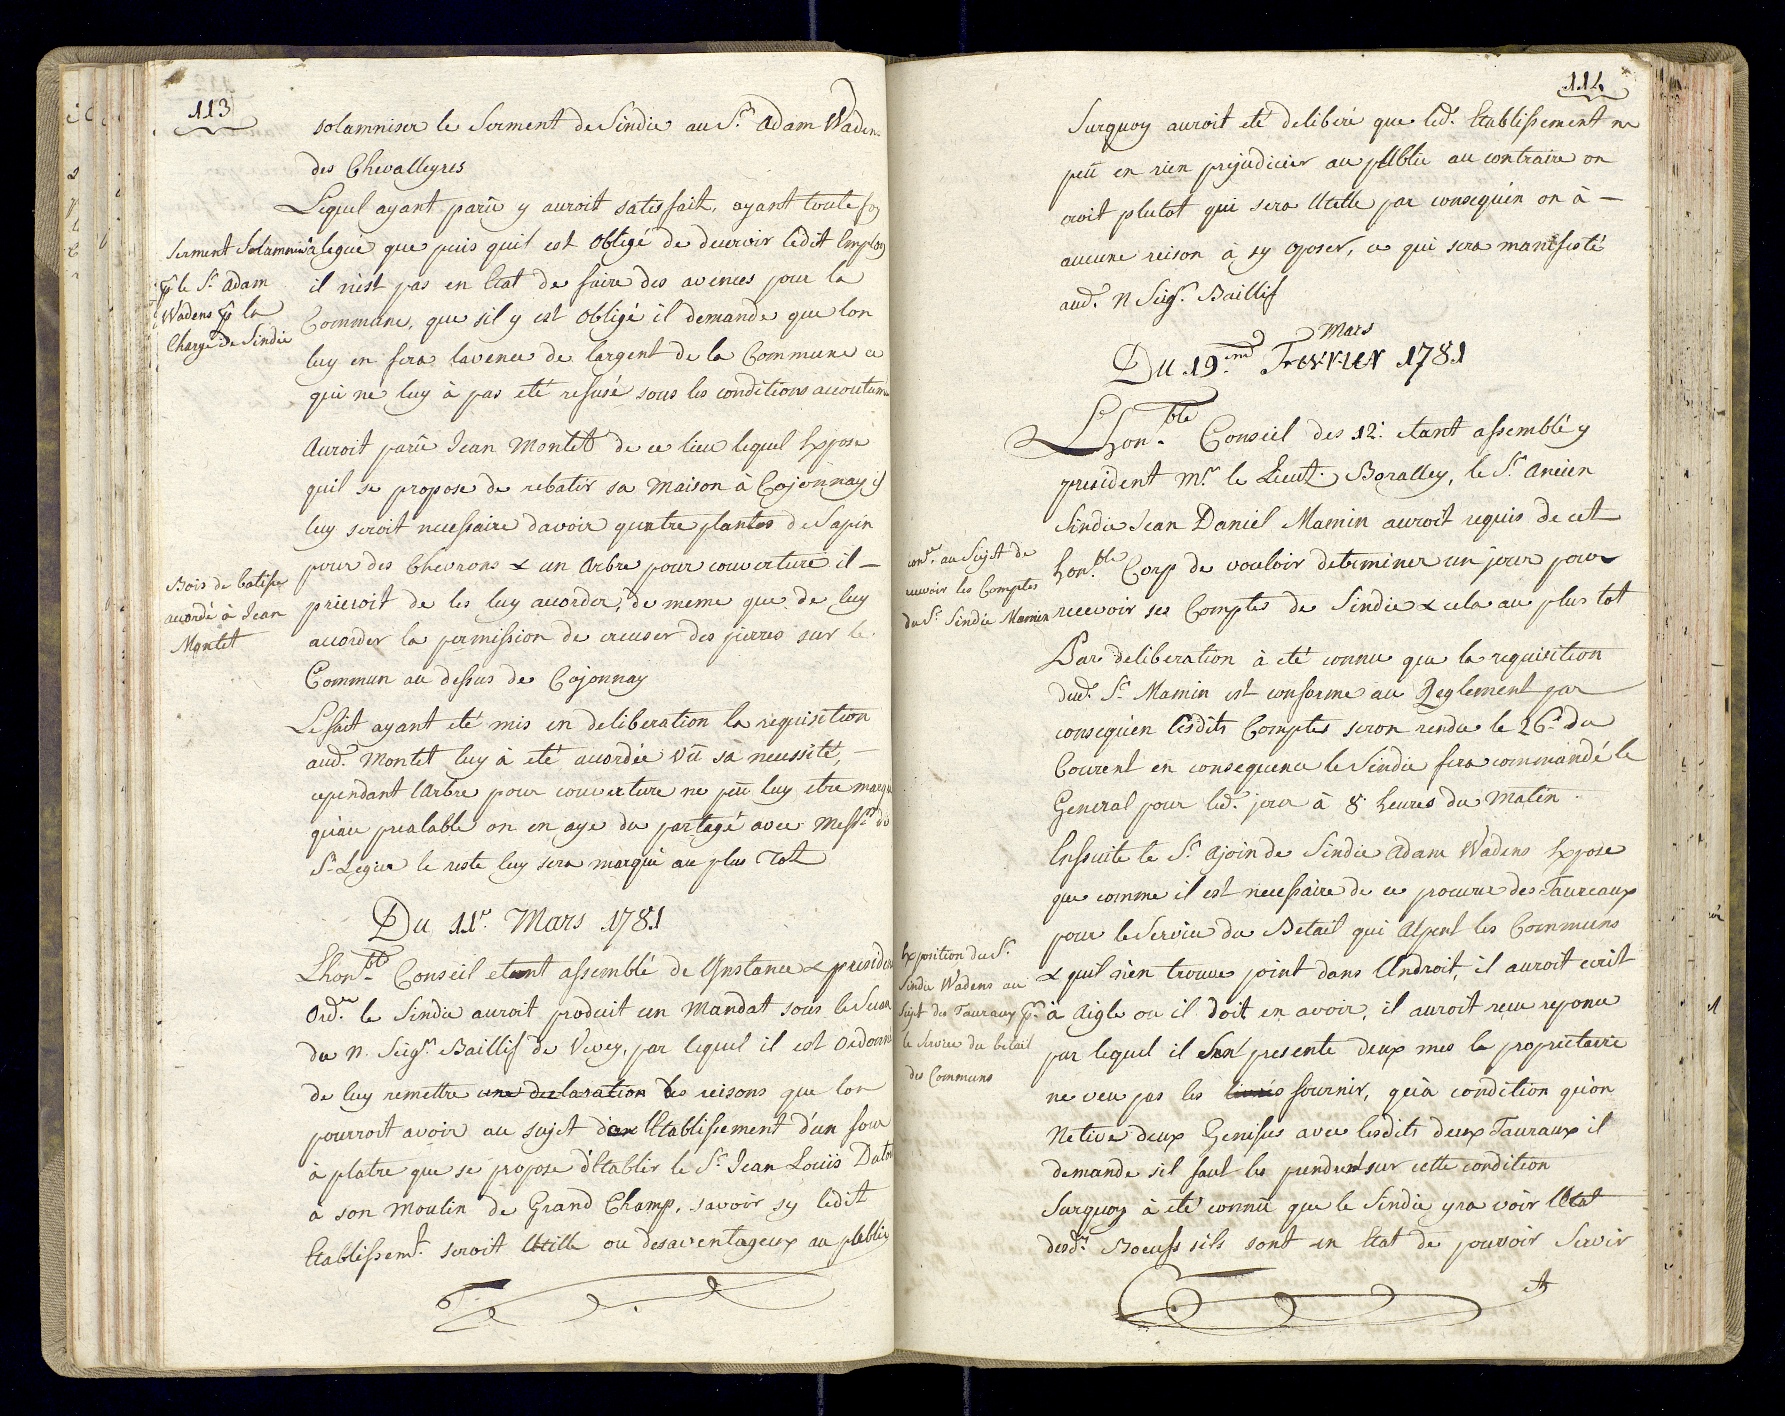 113
solamniser le Serment de Sindic au Sr. Adam Waden
des Chevalleyres
Lequel ayant parû y auroit satisfait, ayant toutefoy
Serment Solamnisé
alegué que puis quil est Obligé de decevoir ledit Employ
pr le Sr. Adam
il n'est pas en Etat de faire des avences pour la
Wadens pr la
Commune, que sil y est Obligé il demande que lon
Charge de Sindic
luy en fera lavence de largent de la Commune ce
qui ne luy à pas eté refusé sous les conditions accoutumé
Auroit parû Jean Montet de ce lieu lequel Expose
quil se propose de rebatir sa Maison à Cojonnay il
luy seroit necessaire davoir quatre plantes de Sapin
pour des Chevrons & un Arbre pour couverture il —
Bois de batisse
prieroit de les luy accorder, de meme que de luy
acordé à Jean
accorder la permission de creuser des pierres sur le
Montet
Commun au dessus de Cojonnay
Le fait ayant eté mis en deliberation la requisition
aud. Montet luy à eté acordée Vû sa necessité,
cependant l'Arbre pour couverture ne peû luy etre marqu
qu'au prealable on en aye du partagé avec Messrs. de
St. Legier le reste luy sera marqué au plus Tot
Du 11e. Mars 1781
L'honble. Conseil etant assemblé de l'Instance & presiden
Ord.re le Sindic auroit produit un Mandat sous le Sceau
du N. Seigr. Baillif de Vevey, par lequel il est Ordonné
de luy remettre une declaration des reisons que lon
pourroit avoir au sujet d'un l'Etablissement d'un four
à platre que se propose d'Etablir le Sr. Jean Louis Dutoi
a son Moulin de Grand Champ, savoir sy ledit
Etablissemt. seroit Utille ou desaventageux au publiq
114
Surquoy auroit eté deliberé que led. Etablissement ne
peû en rien prejudicier au publie au contraire on
croit plutot qui sera Utelle par consequen on à —
aucune reison à sy oposer, ce qui sera manifesté
aud. N Seigr. Baillif
Mars
Du 19.eme Fevrier 1781
L'hon.ble Conseil des 12. etant assemblé y
president Mr. le Lieut. Boralley, le Sr. Ancien
Sindic Jean Daniel Mamin auroit requis de cet
hon.ble Corp de vouloir determiner un jour pour
au Sujet de
recevoir les Comptes
recevoir ses Comptes de Sindic & cela au plus tot
du Sr. Sindic Mamin
Par deliberation à eté connu que la requisition
dud. Sr. Mamin est conforme au Reglement par
consequen lesdits Comptes seron rendu le 26e. du
Courent en consequence le Sindic fera commandé le
General pour led. jour à 8. heures du Matin.
Ensuite le Sr. Ajoin de Sindic Adam Wadens Expose
que comme il est necessaire de ce procurer des Taureaux
pour le Service du Betail qui Alpent les Communs
Exposition du Sr.
& quil n'en trouve point dans l'Androit, il auroit ecrit
Sindic Wadens au
Sujet des Tauraux pr.
à Aigle ou il doit en avoir, il auroit reçu reponce
le Service du betail
par lequel il s'en presente deux mes le propriettaire
des Communs
ne veu pas les livrés fournir, qu'à condition qu'on
Retire deux Genisses avec lesdits deux Tauraux il
demande sil faut les prendre sur cette condition
Surquoy à eté connû que le Sindic yra voir l'Etat
desd. Boeufs sils sont en Etat de pouvoir Servir